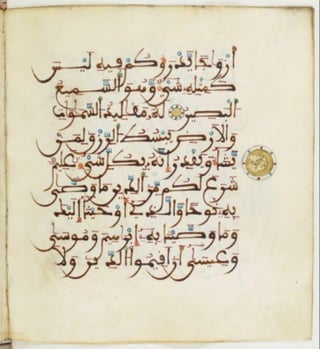 أزواجا يذرؤكم فيه ليس
كمثله شيء وهو السميع
البصير له مقاليد السموات
والأرض يبسط الرزق لمن
يشاء ويقدر إنه بكل شيء عليم
شرع لكم من الدين ما وصى
به نوحا والذي أوحينا إليك
وما وصينا به إبرهيم وموسى
وعيسى أن أقيموا الدين ولا